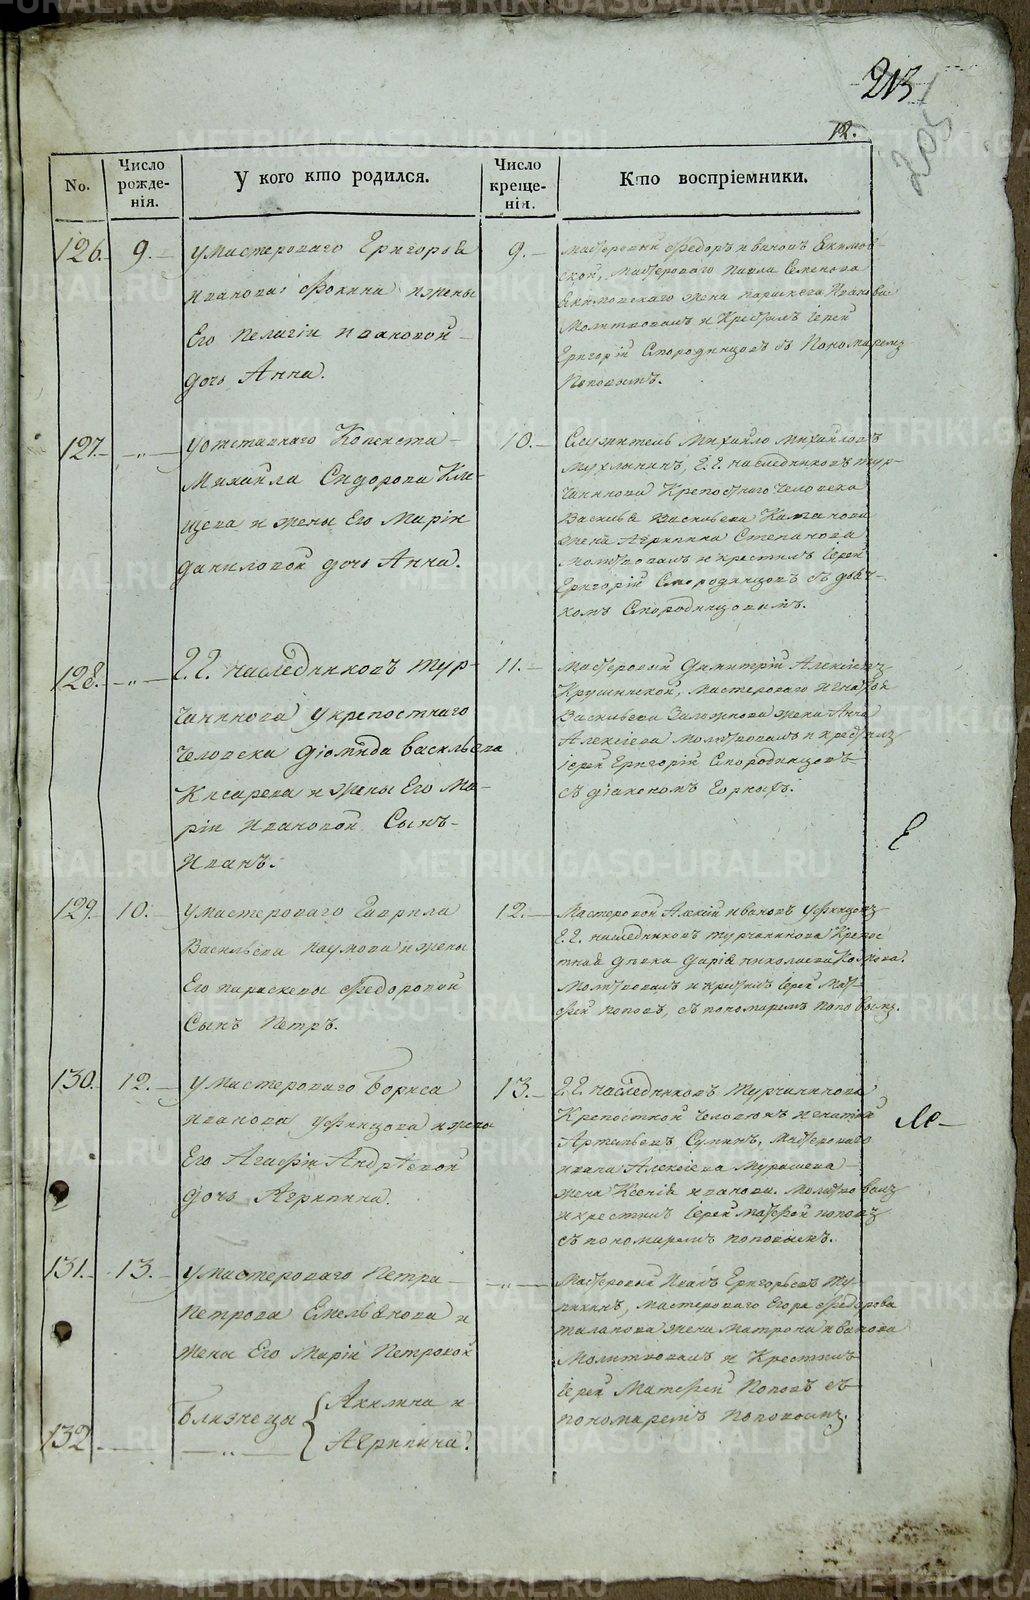 213
205
12.
No.
Число рожде-нія.
У кого кто родился.
Число креще-нія.
Кто воспріемники.
126. 9.
у мастероваго Григорья
Иванова Фокина и жены
Его Пелагіи Ивановой
дочь Анна.
9.
мастеровый Федоръ Ивановъ Екимов-
ской, мастероваго Павла Семенова
Екимовскаго жена Параскева Иванова
Молитвовалъ и Крестилъ Іерей
Григорій Смородинцовъ съ Пономаремъ
Поповымъ.
127.
у отставнаго
Михаила Сидорова Кли-
щева и жены Его Маріи
Даниловой дочь Анна.
10.
Служитель Михайло Михайловъ
Мухлынинъ, Г.Г. наследниковъ Тур-
чанинова Крепостнаго человека
Василья Васильева Катанова
жена Агрипина Степанова
молитвовалъ и крестилъ Іерей
Григорій Смородинцовъ съ дьяч-
комъ Смородинцовымъ.
128.
Г.Г. наследниковъ Тур-
чанинова у крепостнаго
человека Діомида Васильева
Кисарева и жены Его Ма-
ріи Ивановой Сынъ
Иванъ.
11.
мастеровый Димитрій Алексіевъ
Крушинской, мастероваго Игнатья
Васильева жена Анна
Алексіева молитвовалъ и крестилъ
іерей Григорій Смородинцовъ
съ діакономъ
Е
129. 10.
у мастероваго Гаврила
Васильева Наумова и жены
Его Параскевы Федоровой
Сынъ Петръ.
12.
Мастеровой Алексій Ивановъ Уфинцовъ
Г.Г. наследниковъ Турчанинова Крепос
тная девка Дарія Николаева
Молитвовалъ и крестилъ Іерей Мат-
фей Поповъ, съ пономаремъ Поповымъ.
130. 12.
у мастероваго Бориса
Иванова Уфинцова и жены
Его Агафіи Андреевой
дочь Агрипина.
13.
Г.Г. наследниковъ Турчанинова
Крепостной человекъ Игнатей
Артемьевъ Сунинъ, мастероваго
Ивана Алексіева Мурашева
жена Ксенія Иванова. Молитвовалъ
и крестилъ Іерей Матфей Поповъ
съ пономаремъ Поповымъ.
131. 13.
у мастероваго Петра
Петрова Емельянова и
жены Его Маріи Петровой
132
Близнецы { Акилина и
Агрипина.
Мастеровый Иванъ Григорьевъ
мастероваго Егора Федорова
Талапова жена Матрона Иванова
Молитвовалъ и Крестилъ
Іерей Матфей Поповъ съ
пономаремъ Поповымъ.
METRIKI.GASO-URAL.RU